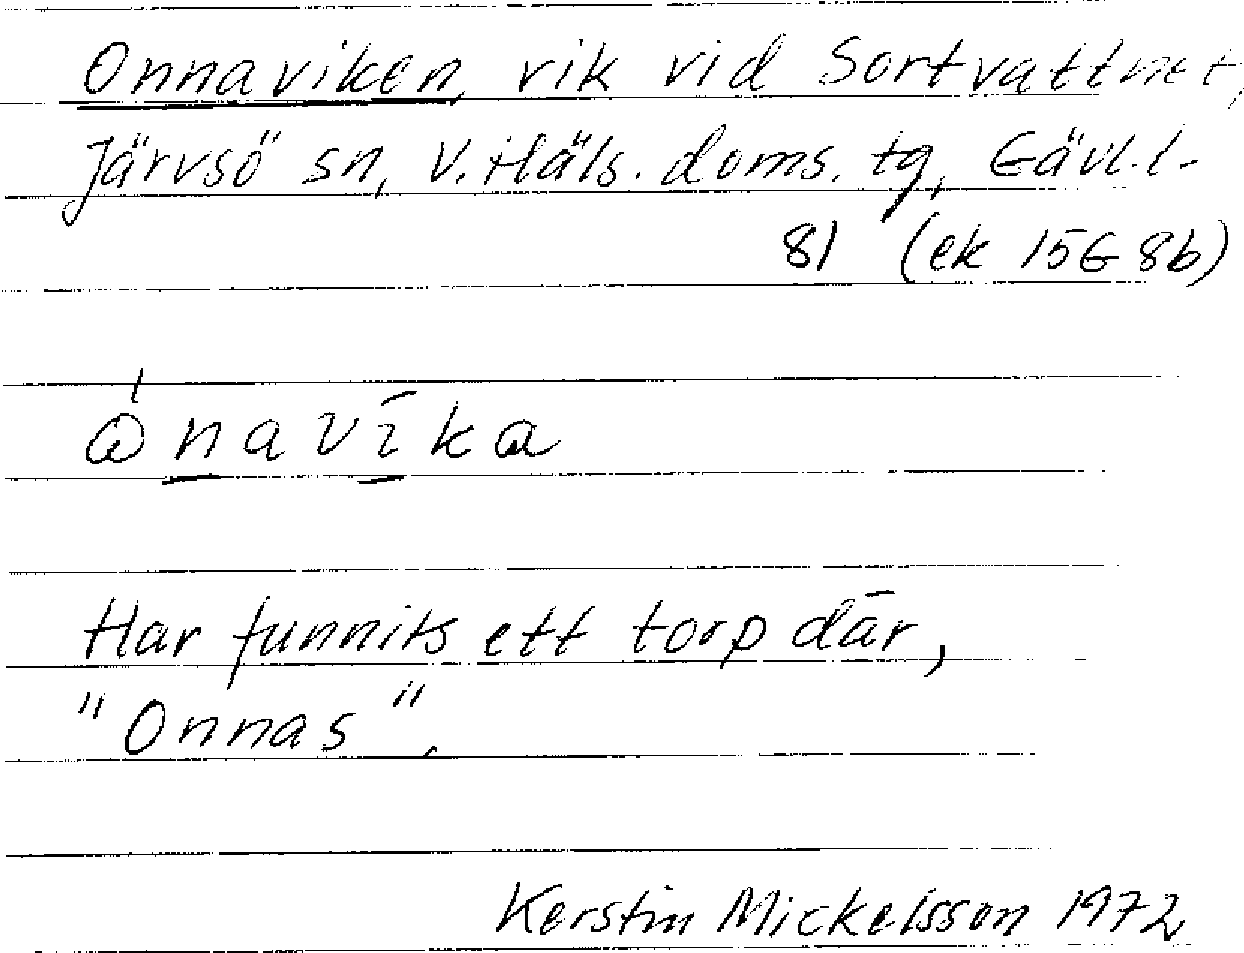 Onnaviken, vik vid Sortvattnet,
Järvsö sn, V. Häls. doms. tg, Gävl. l.
81 (ek 15G 8b)
ånavīka
Har funnits ett torp där,
"Onnas".
Kerstin Mickelsson 1972